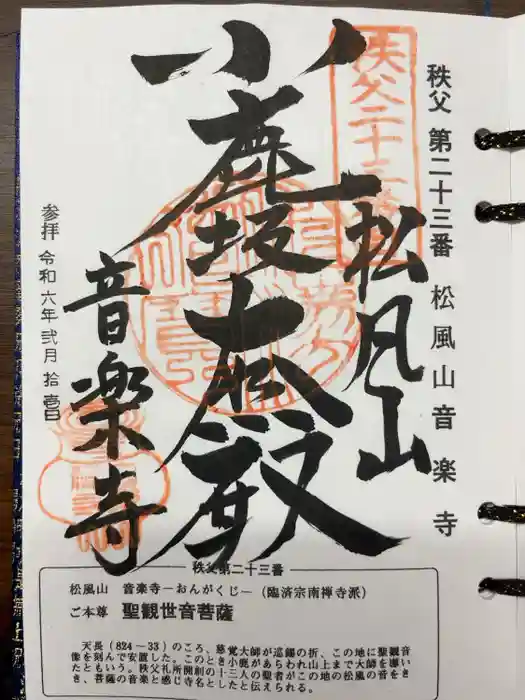 秩父 第二十三番 松風山音楽寺
秩父二十三番
松風山
小鹿坂大悲殿
音楽寺
参拝 令和六年 弐月 拾壱日
秩父第二十三番
松風山 音楽寺－おんがくじ－（臨済宗南禅寺派）
ご本尊 聖観世音菩薩
天長（824－33）のころ、慈覚大師が巡錫の折、この地に聖観音
像を刻んで安置した。このとき小鹿があらわれ山上まで大師を導い
たともいう。秩父札所開創の十三人の聖者がこの地の松風の音をき
き、菩薩の音楽と感じ寺名としたと伝えられる。